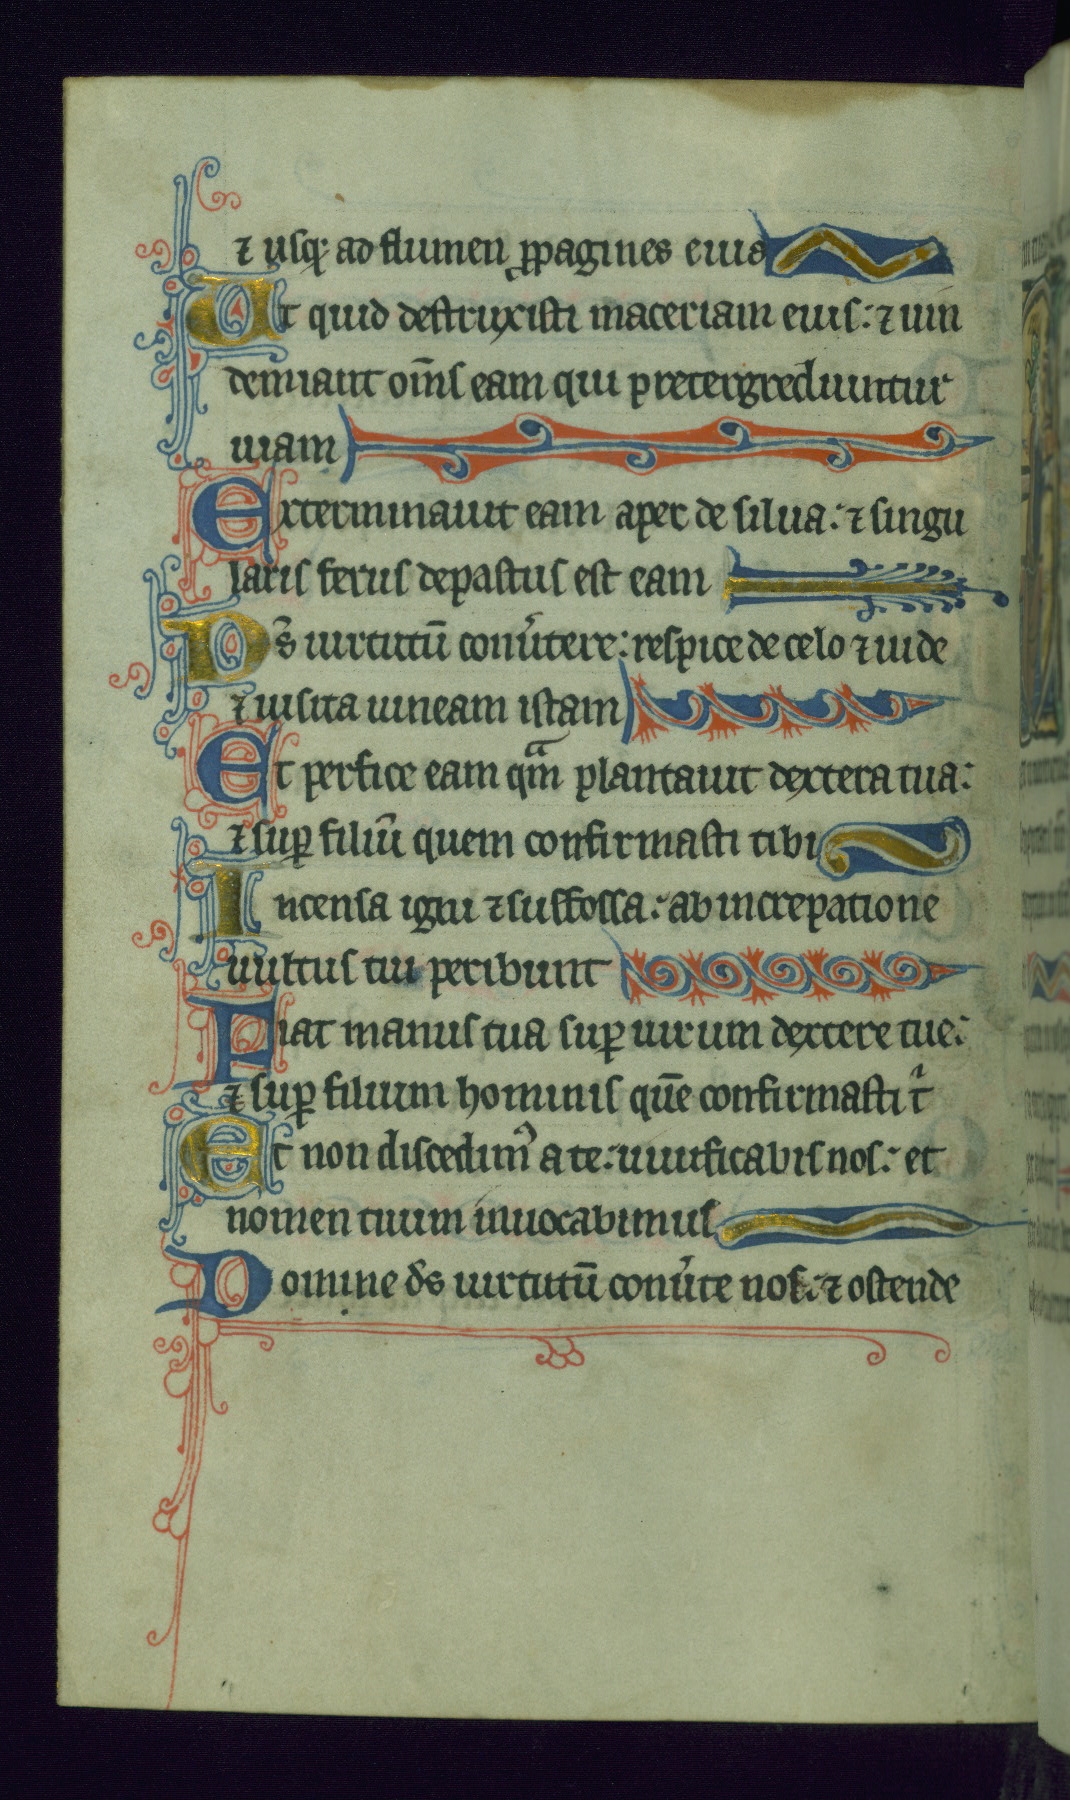 ⁊ usq; ad flumen ꝓpagines eius
Ut quid destruxisti maceriam eius: ⁊ uin
demiant om̄s eam qui pretergrediuntur
uiam
Exterminauit eam aper de silua: ⁊ singu
laris ferus depastus est eam
Ds̄ uirtutū conu̓tere: respice de celo ⁊ uide
⁊ uisita uineam istam
Et perfice eam qm̄ plantauit dextera tua:
⁊ suꝑ filiū quem confirmasti tibi
Incensa igni ⁊ suffossa: ab increpatione
uultus tui peribunt
Fiat manus tua suꝑ uirum dextere tue:
⁊ suꝑ filium hominis quē confirmasti tⁱ
Et non discedimꝰ a te: uiuificabis nos: et
nomen tuum inuocabimus
Domine ds̄ uirtutū conu̓te nos: ⁊ ostende